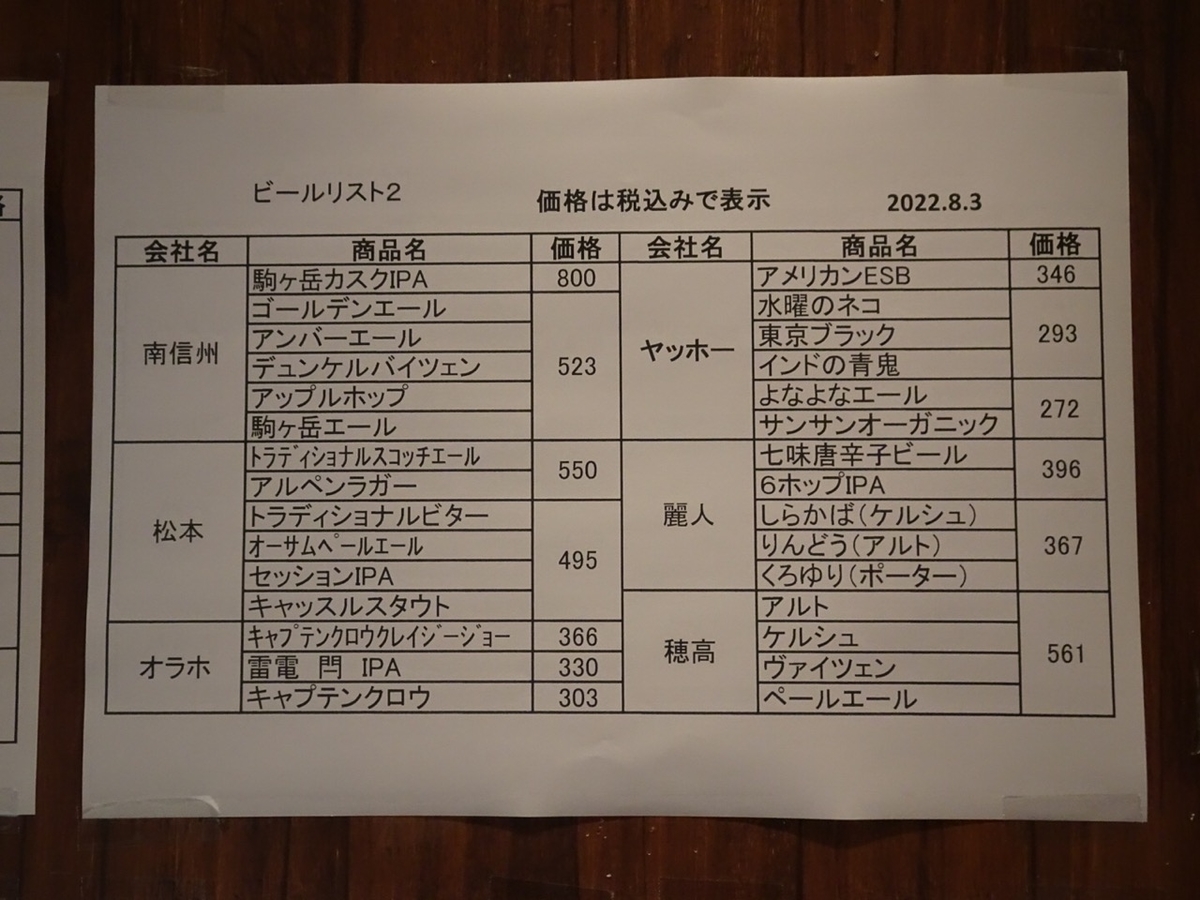 ビールリスト2 価格は税込みで表示 2022.8.3
会社名 商品名 価格 会社名 商品名 価格
南信州
駒ヶ岳カスクIPA 800
ゴールデンエール
アンバーエール
デュンケルバイツェン
アップルホップ
駒ヶ岳エール
523
松本
トラディショナルスコッチエール
アルペンラガー
550
トラディショナルビター
オーサムペールエール
セッションIPA
キャッスルスタウト
495
オラホ
キャプテンクロウクレイジージョー 366
雷電 閂 IPA 330
キャプテンクロウ 303
ヤッホー
アメリカンESB 346
水曜のネコ
東京ブラック
インドの青鬼
293
よなよなエール
サンサンオーガニック
272
麗人
七味唐辛子ビール
6ホップIPA
396
しらかば(ケルシュ)
りんどう(アルト)
くろゆり(ポーター)
367
穂高
アルト
ケルシュ
ヴァイツェン
ペールエール
561